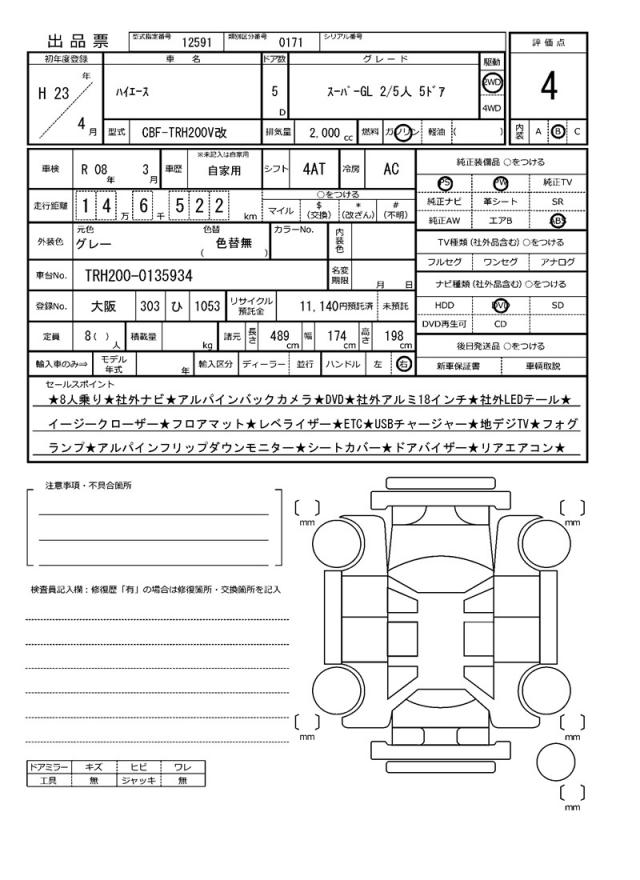 出品票 型式指定番号 12591 類別区分番号 0171 シリアル番号
評価点
4
内装 A B C
初年度登録 車名 ドア数 グレード 駆動
H 23 年 4 月 ハイエース 5 D スーパーGL 2/5人 5ドア 2WD 4WD
型式 CBF-TRH200V改 排気量 2,000 cc 燃料 ガソリン 軽油 ( )
車検 R 08 年 3 月 車歴 ※未記入は自家用 自家用 シフト 4AT 冷房 AC
走行距離 1 4 万 6 千 5 2 2 km ○をつける
マイル $ (交換) * (改ざん) # (不明)
外装色 元色 グレー 色替 色替無 ( ) カラーNo. 内装色
車台No. TRH200-0135934 名変期限 月 日
登録No. 大阪 303 ひ 1053 リサイクル預託金 11,140円預託済 未預託
定員 8( ) 人 積載量 kg 諸元 長さ 489 cm 幅 174 cm 高さ 198 cm
輸入車のみ⇒ モデル年式 年 輸入区分 ディーラー 並行 ハンドル 左 右
純正装備品 ○をつける
PS PW 純正TV
純正ナビ 革シート SR
純正AW エアB ABS
TV種類(社外品含む)○をつける
フルセグ ワンセグ アナログ
ナビ種類(社外品含む)○をつける
HDD DVD SD
DVD再生可 CD
後日発送品 ○をつける
新車保証書 車輌取説
セールスポイント
★8人乗り★社外ナビ★アルパインバックカメラ★DVD★社外アルミ18インチ★社外LEDテール★
イージークローザー★フロアマット★レベライザー★ETC★USBチャージャー★地デジTV★フォグ
ランプ★アルパインフリップダウンモニター★シートカバー★ドアバイザー★リアエアコン★
注意事項・不具合箇所
検査員記入欄：修復歴「有」の場合は修復箇所・交換箇所を記入
mm mm
mm mm
mm
ドアミラー キズ ヒビ ワレ
工具 無 ジャッキ 無